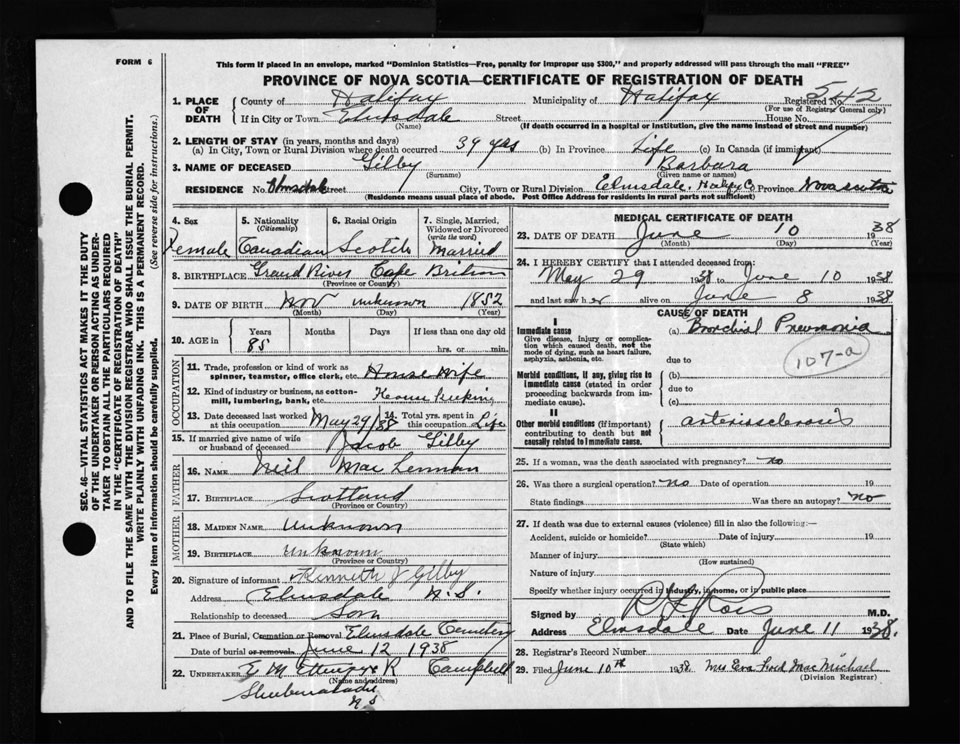 FORM 6
This form if placed in an envelope, marked "Dominion Statistics—Free, penalty for improper use $300," and properly addressed will pass through the mail "FREE"
PROVINCE OF NOVA SCOTIA—CERTIFICATE OF REGISTRATION OF DEATH
SEC. 46—VITAL STATISTICS ACT MAKES IT THE DUTY
OF THE UNDERTAKER OR PERSON ACTING AS UNDER-
TAKER TO OBTAIN ALL THE PARTICULARS REQUIRED
IN THE "CERTIFICATE OF REGISTRATION OF DEATH"
AND TO FILE THE SAME WITH THE DIVISION REGISTRAR WHO SHALL ISSUE THE BURIAL PERMIT.
WRITE PLAINLY WITH UNFADING INK. THIS IS A PERMANENT RECORD.
Every item of information should be carefully supplied. (See reverse side for instructions.)
1. PLACE OF DEATH County of Halifax Municipality of Halifax Registered No. 542
(For use of Registrar General only)
If in City or Town Elmsdale Street House No.
(Name) (If death occurred in a hospital or institution, give the name instead of street and number)
2. LENGTH OF STAY (in years, months and days)
(a) In City, Town or Rural Division where death occurred 39 yrs (b) In Province Life (c) In Canada (if immigrant)
3. NAME OF DECEASED Gilby Barbara
(Surname) (Given name or names)
RESIDENCE No. Elmsdale Street City, Town or Rural Division Elmsdale, Halifx Co Province Nova scotia
(Residence means usual place of abode. Post Office Address for residents in rural parts not sufficient)
4. Sex 5. Nationality (Citizenship) 6. Racial Origin 7. Single, Married, Widowed or Divorced (write the word)
Female Canadian Scotch Married
8. BIRTHPLACE Grand River Cape Breton
(Province or Country)
9. DATE OF BIRTH Nov unknown 1852
(Month) (Day) (Year)
10. AGE in Years Months Days If less than one day old
85 hrs. or min.
OCCUPATION
11. Trade, profession or kind of work as spinner, teamster, office clerk, etc. House Wife
12. Kind of industry or business, as cotton-mill, lumbering, bank, etc. House Keeking
13. Date deceased last worked at this occupation May 29/38 14. Total yrs. spent in this occupation Life
15. If married give name of wife or husband of deceased Jacob Gilby
FATHER
16. NAME Neil Mac Lennan
17. BIRTHPLACE Scotland
(Province or Country)
MOTHER
18. MAIDEN NAME Unknown
19. BIRTHPLACE unknown
(Province or Country)
20. Signature of informant Kenneth J Gilby
Address Elmsdale N.S.
Relationship to deceased Son
21. Place of Burial, Cremation or Removal Elmsdale Cemetery
Date of burial or removal June 12 1938
22. UNDERTAKER R Campbell
(Name and address)
Shubenacadie
N S
MEDICAL CERTIFICATE OF DEATH
23. DATE OF DEATH June 10 1938
(Month) (Day) (Year)
24. I HEREBY CERTIFY that I attended deceased from:
May 29 1938 to June 10 1938
and last saw her alive on June 8 1938
CAUSE OF DEATH
I
Immediate cause (a) Bronchial Pneumonia
Give disease, injury or complication which caused death, not the mode of dying, such as heart failure, asphyxia, asthenia, etc.
due to
107-a
Morbid conditions, if any, giving rise to immediate cause (stated in order proceeding backwards from immediate cause).
(b)
due to
(c)
II
Other morbid conditions (if important) contributing to death but not causally related to immediate cause.
arteriosclerosis
25. If a woman, was the death associated with pregnancy? no
26. Was there a surgical operation? no Date of operation 19
State findings Was there an autopsy? no
27. If death was due to external causes (violence) fill in also the following:—
Accident, suicide or homicide? Date of injury 19
(State which)
Manner of injury
(How sustained)
Nature of injury
Specify whether injury occurred in industry, in home, or in public place
Signed by Ross M.D.
Address Elmsdale Date June 11 1938.
28. Registrar's Record Number
29. Filed June 10th 1938 Mrs Eva Ford Mac Michael
(Division Registrar)